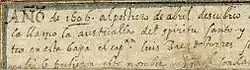 AÑO de 1606. al postrero de abril descubrio
la llamo la australia del espiritu santo y
en esta baya el cap. Luis Baez de Torres
este nombre